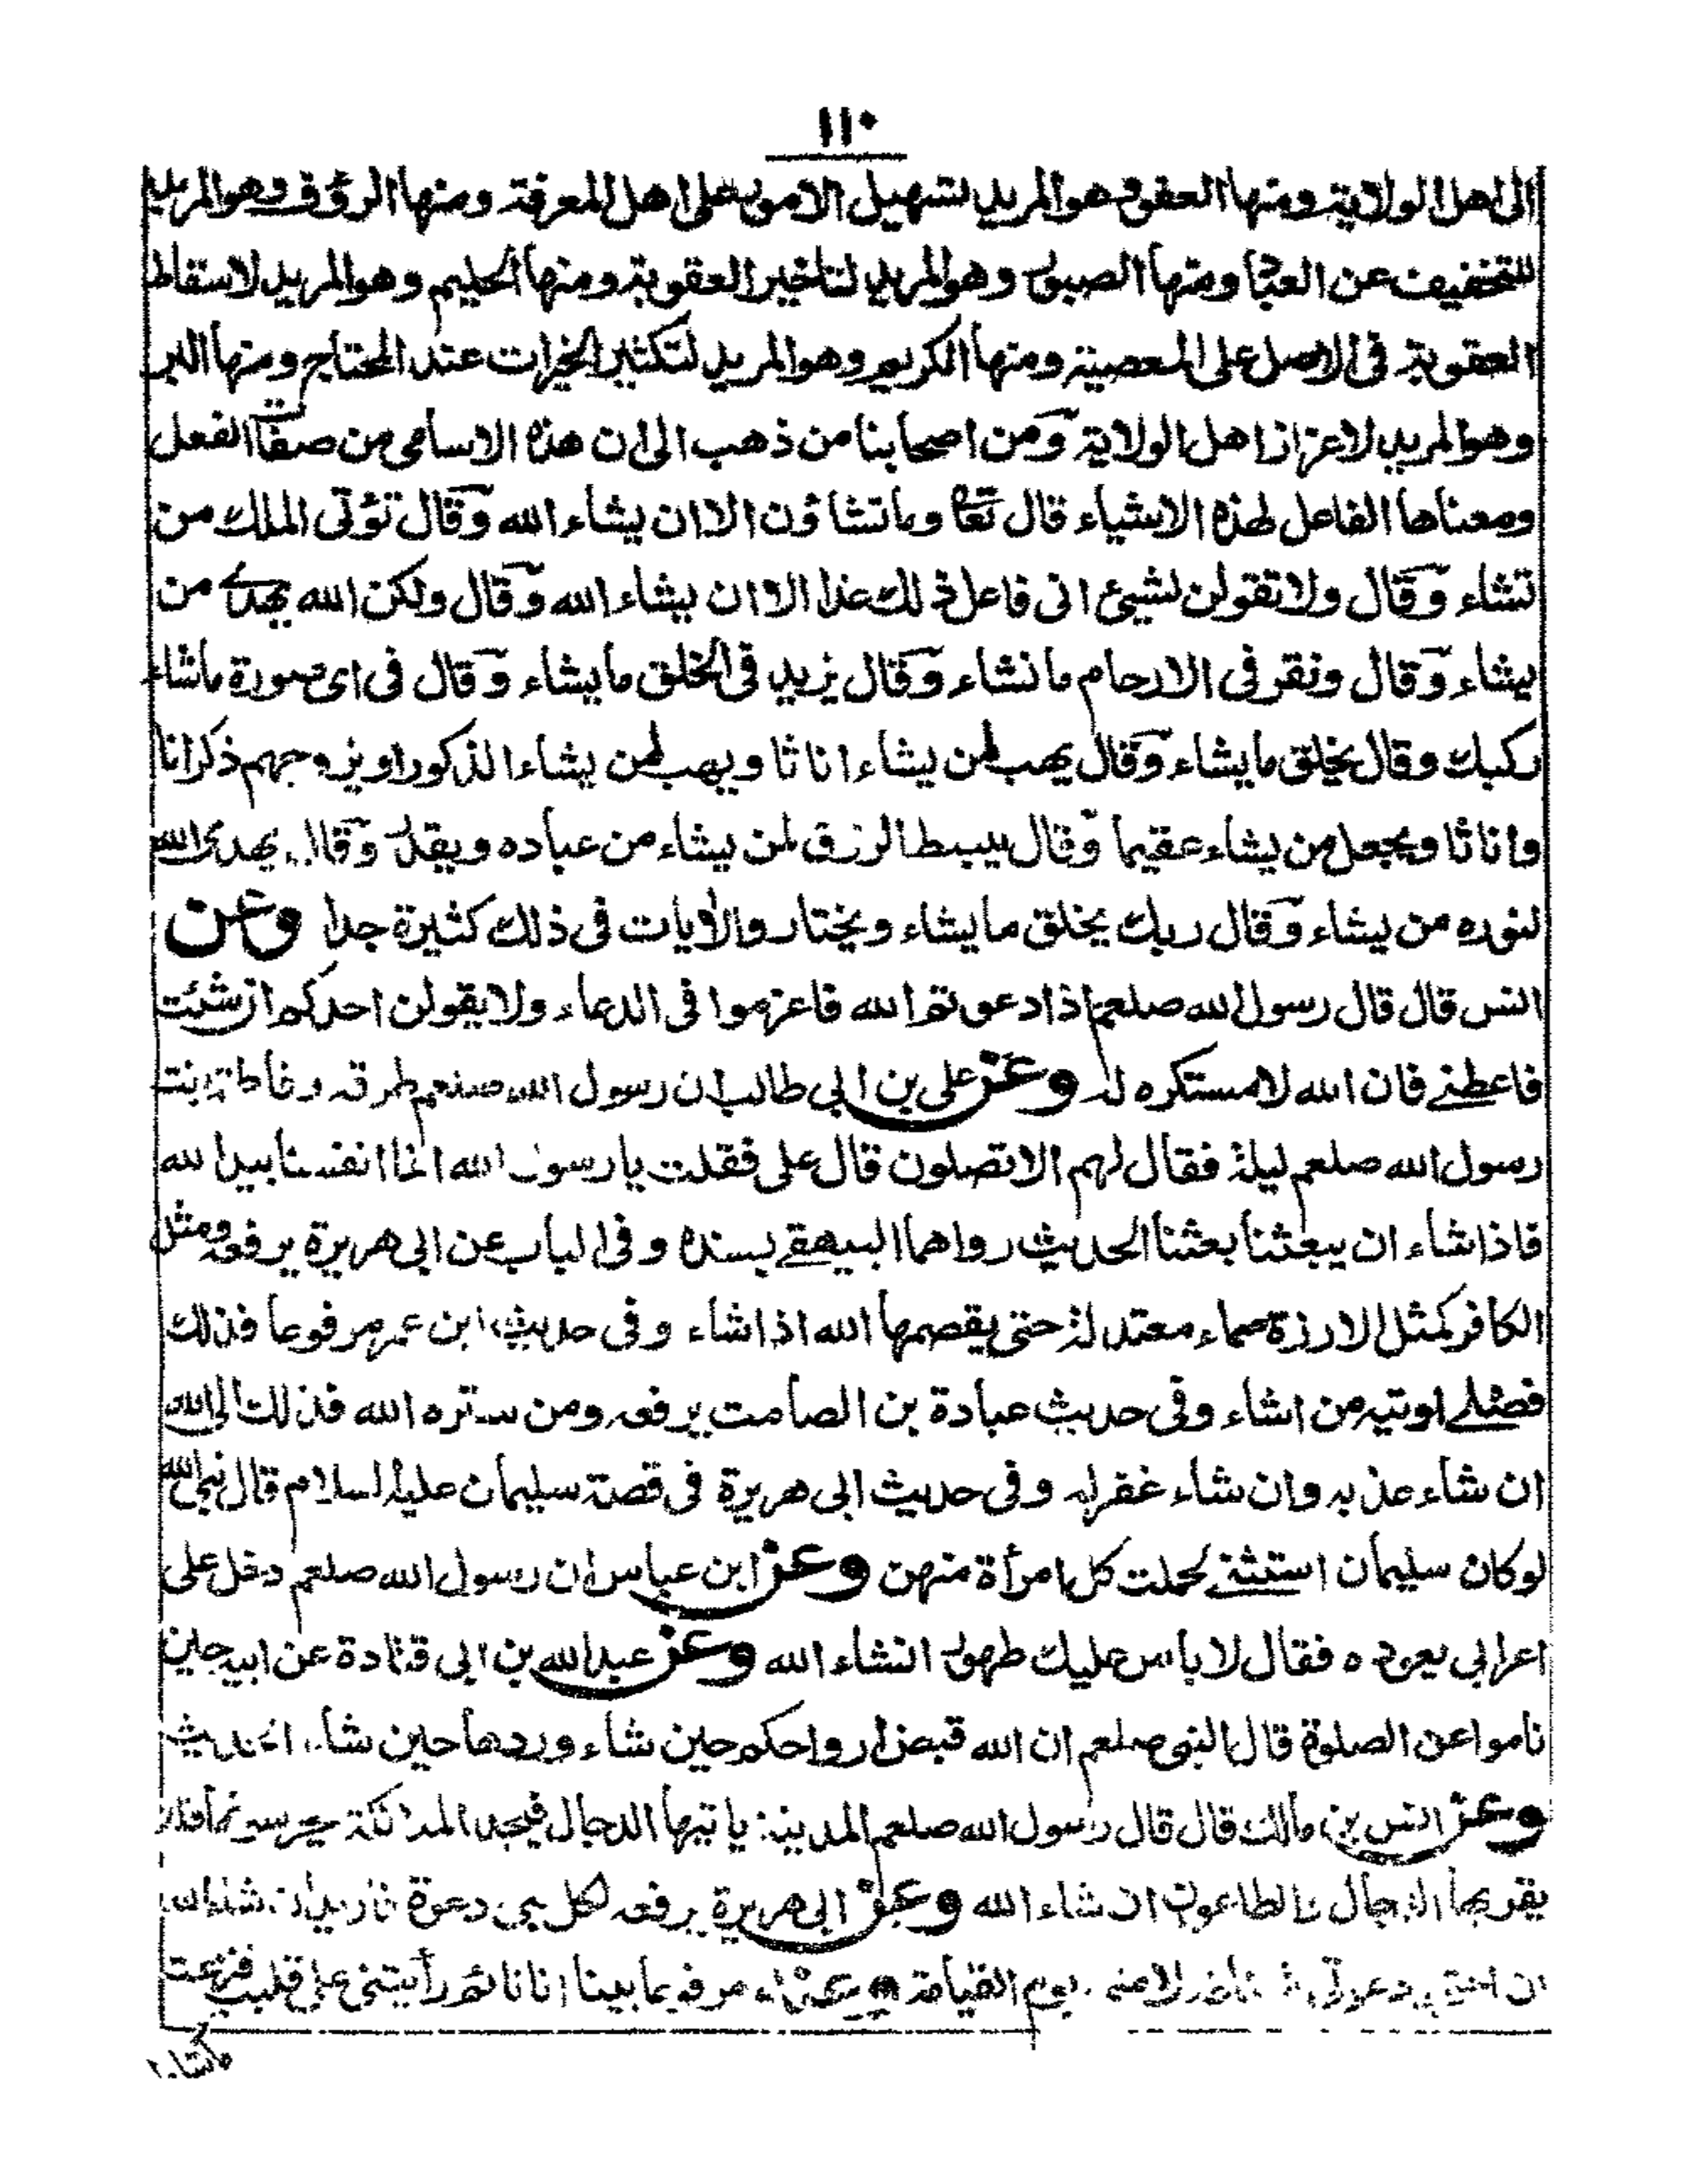 ١١٠
الى اهل الولاية ومنها العفو وهو المريد لتسهيل الامور على اهل المعرفة ومنها الرؤف وهو المريد
للتخفيف عن العباد ومنها الصبور وهو المريد لتاخير العقوبة ومنها الحليم وهو المريد لاسقاط
العقوبة فى الاصل على المعصية ومنها الكريم وهو المريد لتكثير الخيرات عند المحتاج ومنها البر
وهو المريد لاعزاز اهل الولاية ومن اصحابنا من ذهب الى ان هذه الاسامى من صفات الفعل
ومعناها الفاعل لهذه الاشياء قال تعا وما تشاؤن الا ان يشاء الله وقال تؤتى الملك من
تشاء وقال ولا تقولن لشيئ انى فاعل ذلك غدا الا ان يشاء الله وقال ولكن الله يهدے من
يشاء وقال ونقر فى الارحام ما نشاء وقال يزيد فى الخلق ما يشاء وقال فى اى صورة ما شاء
ركبك وقال يخلق ما يشاء وقال يهب لمن يشاء اناثا ويهب لمن يشاء الذكور او يزوجهم ذكرانا
واناثا ويجعل من يشاء عقيما وقال يبسط الرزق لمن يشاء من عباده ويقدر وقال يهدى الله
لنوره من يشاء وقال ربك يخلق ما يشاء ويختار والايات فى ذلك كثيرة جدا وعن
انس قال قال رسول الله صلعم اذا دعوتم الله فاعزموا فى الدعاء ولا يقولن احدكم ان شئت
فاعطنے فان الله لا مستكره له وعن على بن ابي طالب ان رسول الله صلعم طرقه وفاطمة بنت
رسول الله صلعم ليلة فقال لهم الا تصلون قال على فقلت يا رسول الله انما انفسنا بيد الله
فاذا شاء ان يبعثنا بعثنا الحديث رواهما البيهقے بسنده وفى الباب عن ابى هريرة يرفعه ومثل
الكافر كمثل الارزة صماء معتدلة حتى يقصمها الله اذا شاء وفى حديث ابن عمر مرفوعا فذلك
فضلے اوتيه من اشاء وفى حديث عبادة بن الصامت يرفعه ومن ستره الله فذلك الى الله
ان شاء عذبه وان شاء غفر له وفى حديث ابى هريرة فى قصة سليمان عليه السلام قال نبى الله
لو كان سليمان استثنے لحملت كل امرأة منهن وعن ابن عباس ان رسول الله صلعم دخل على
اعرابي يعوده فقال لا باس عليك طهور انشاء الله وعن عبد الله بن ابى قتادة عن ابيه حين
ناموا عن الصلوة قال النبى صلعم ان الله قبض ارواحكم حين شاء وردها حين شاء الحديث
وعن انس بن مالك قال قال رسول الله صلعم المدينة ياتيها الدجال فيجد الملائكة يحرسونها فلا
يقربها الدجال ولا الطاعون ان شاء الله وعن ابى هريرة يرفعه لكل نبى دعوة فاريد ان شاء الله
ان اختبى دعوتى شفاعة لامتى يوم القيامة وعنه مرفوعا بينا انا نائم رأيتنى على قليب فنزعت
ما شاء